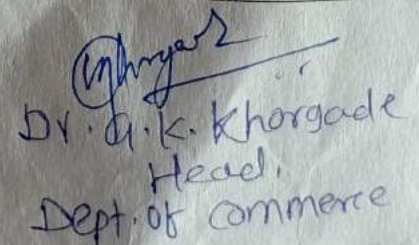 Dr. G. K. Khorgade
Head,
Dept. of Commerce